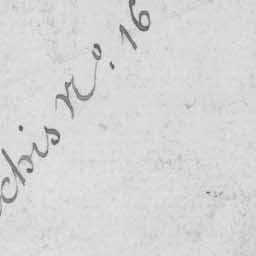 chis No. 16